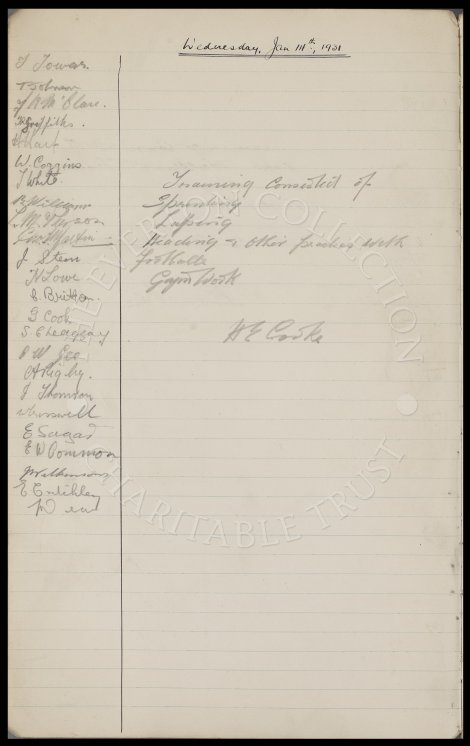 Wednesday, Jan 14th, 1931
T Towers.
T Johnson
J R McClure.
T Griffiths.
H Hart
W. Coggins
T White
B Williams
J Stein
H Lowe
C. Britton.
G Cook
W Gee
A Rigby.
J Thomson
E Sagar
E W Common
J Wilkinson
E Critchley
Training Consisted of
Sprinting
Lapping
Heading & Other practice with
footballs
Gym Work
H E Cooke
THE EVERTON COLLECTION
CHARITABLE TRUST